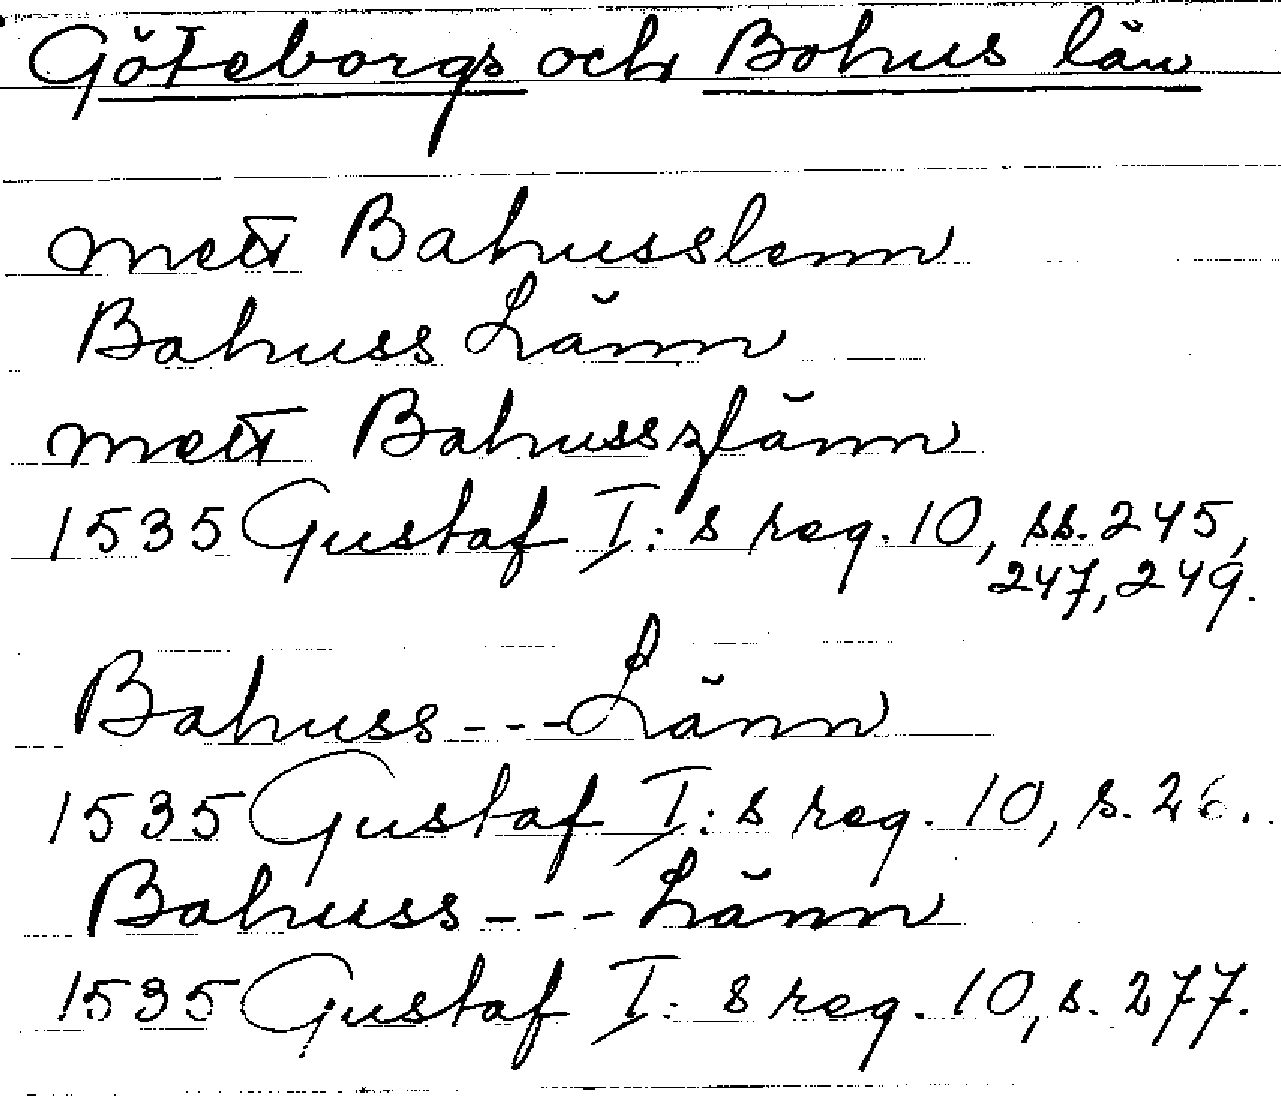 Göteborgs och Bohus län
mett Bahusslenn
Bahuss Länn
mett Bahusszlänn
1535 Gustaf I:s reg. 10, ss. 245,
247, 249.
Bahuss---Länn
1535 Gustaf I:s reg. 10, s. 26.
Bahuss---Länn
1535 Gustaf I:s reg. 10, s. 277.